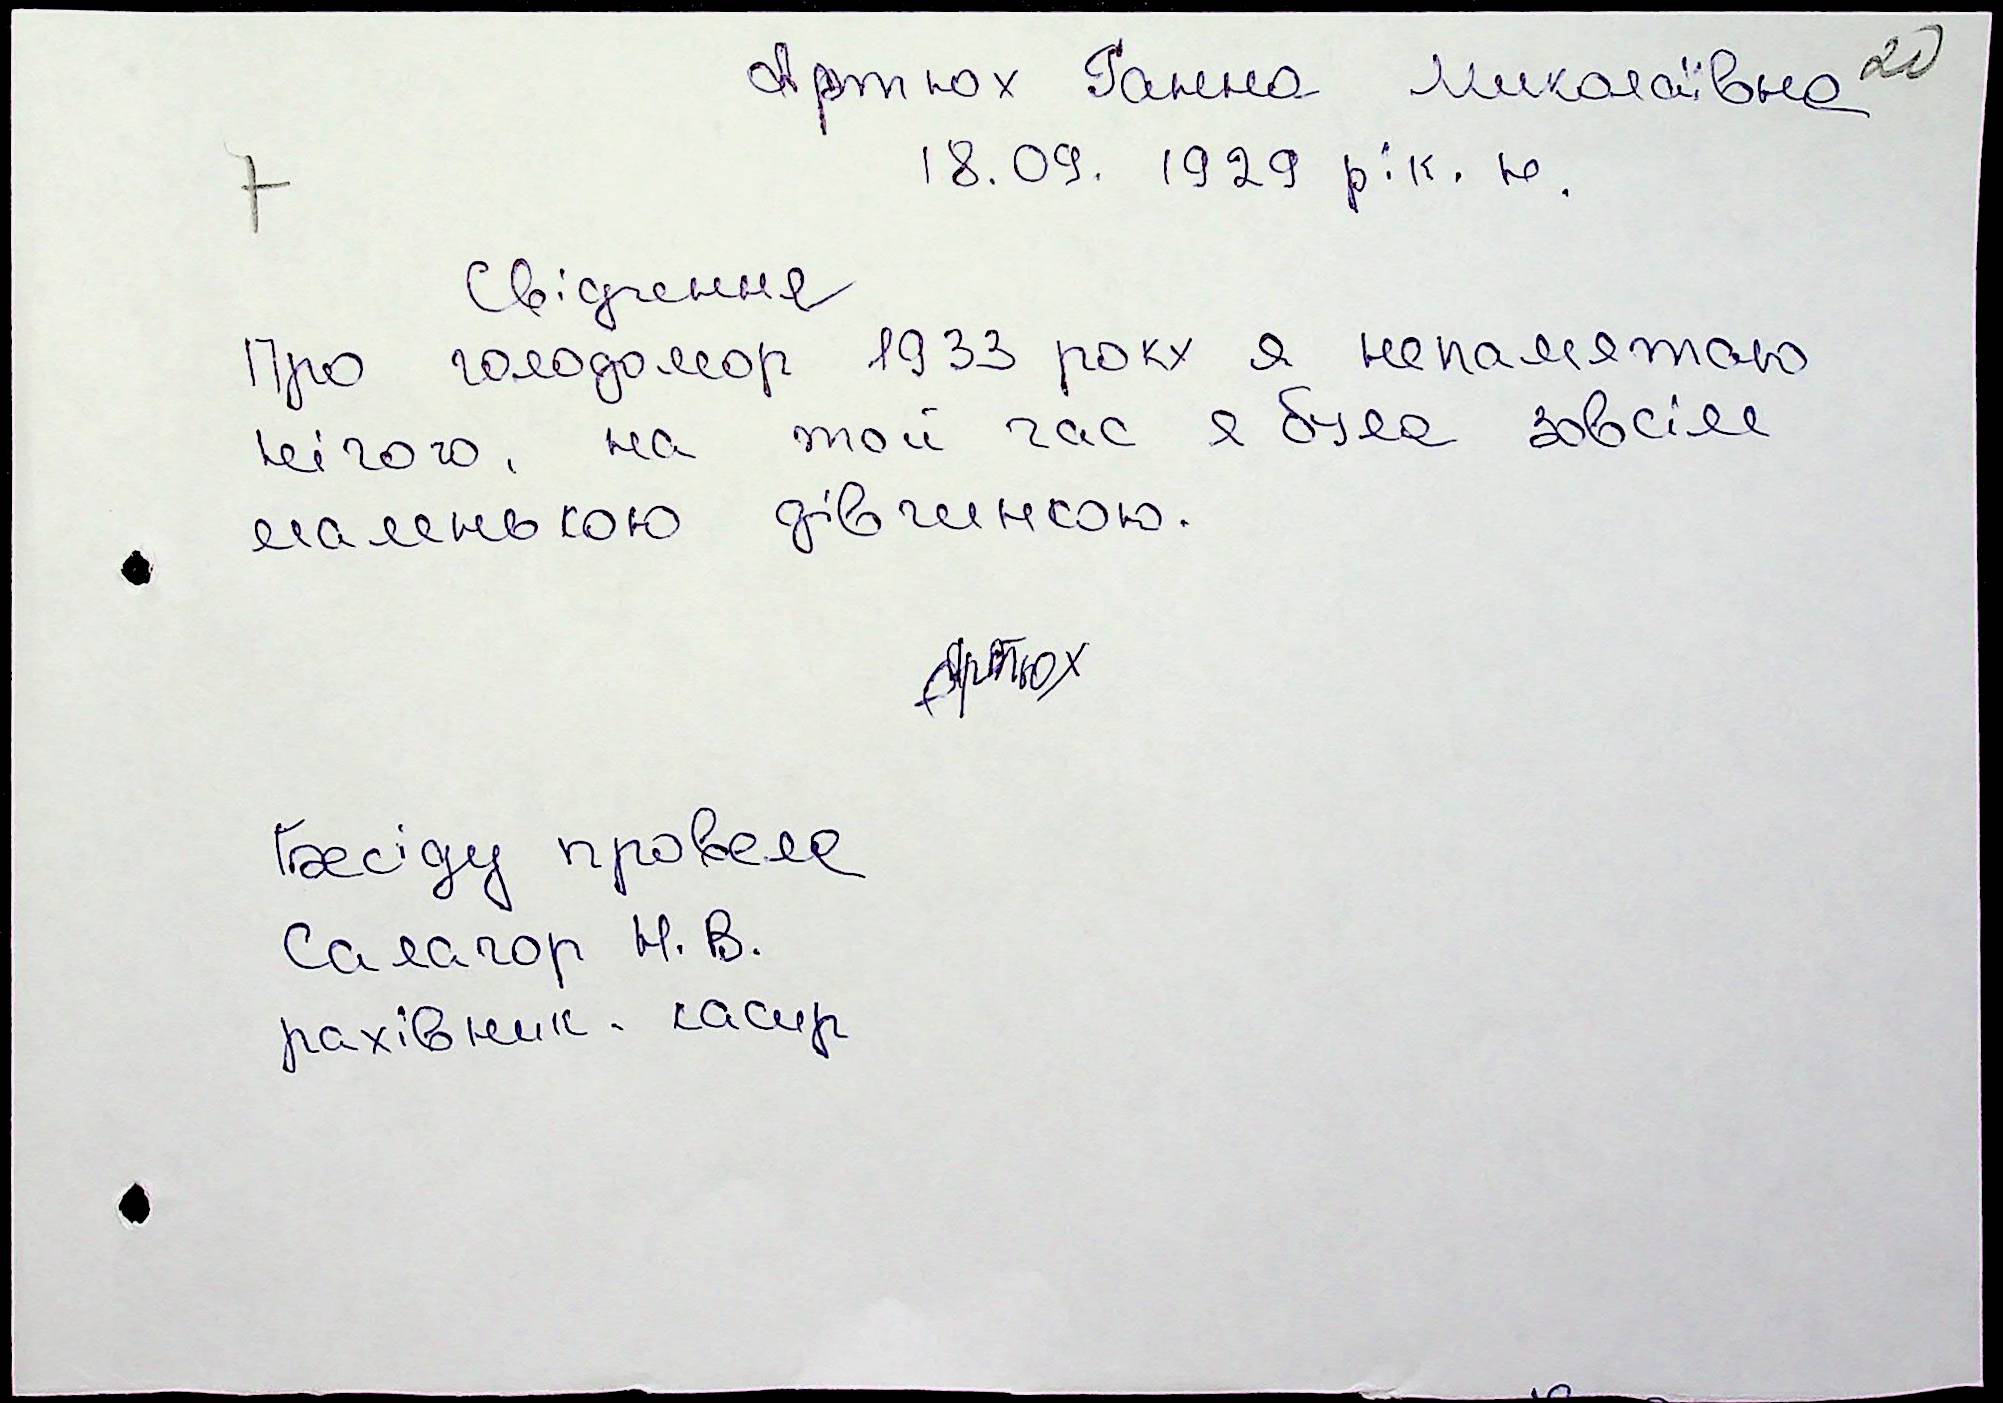 Артюх Ганна Миколаївна
20
18.09. 1929 рік. н.
7
Свідчення
Про голодомор 1933 року я непамятаю
нічого, на той час я була зовсім
маленькою дівчинкою.
Артюх
Бесіду провела
Салагор Н.В.
рахівник-касир